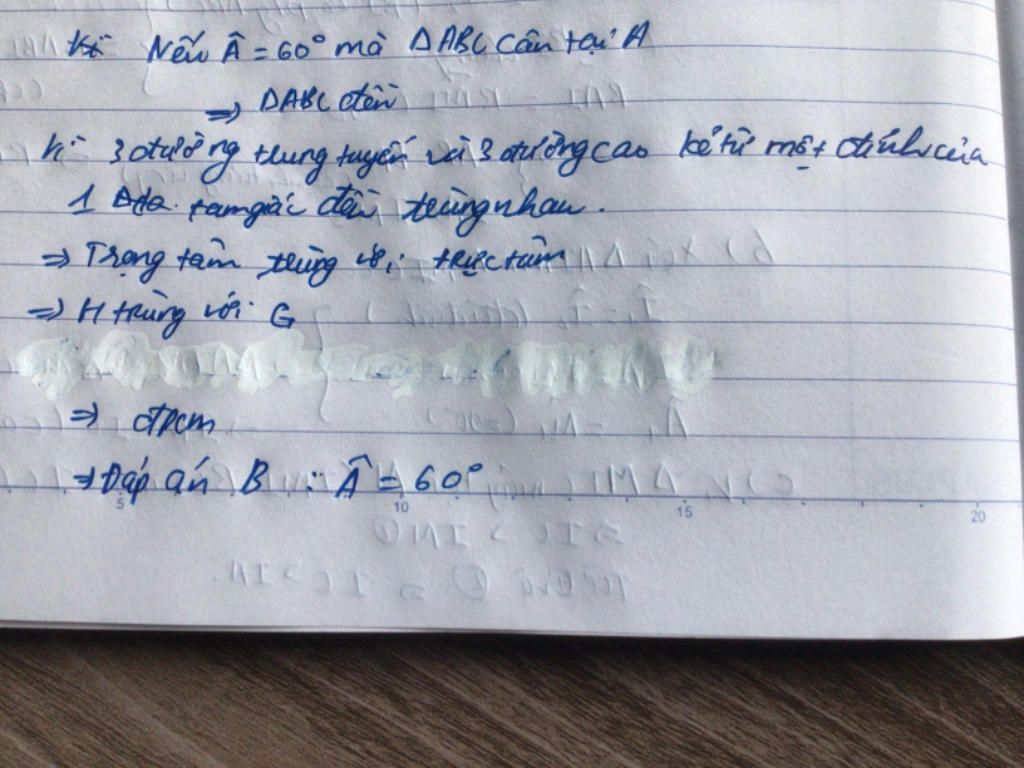 Nếu Â = 60° mà ΔABC cân tại A
=> ΔABC đều
Vì 3 đường trung tuyến và 3 đường cao kẻ từ một đỉnh của
1 tam giác đều trùng nhau.
=> Trọng tâm trùng với trực tâm
=> H trùng với G
=> đpcm
=> Đáp án B : Â = 60°
5 10 15 20